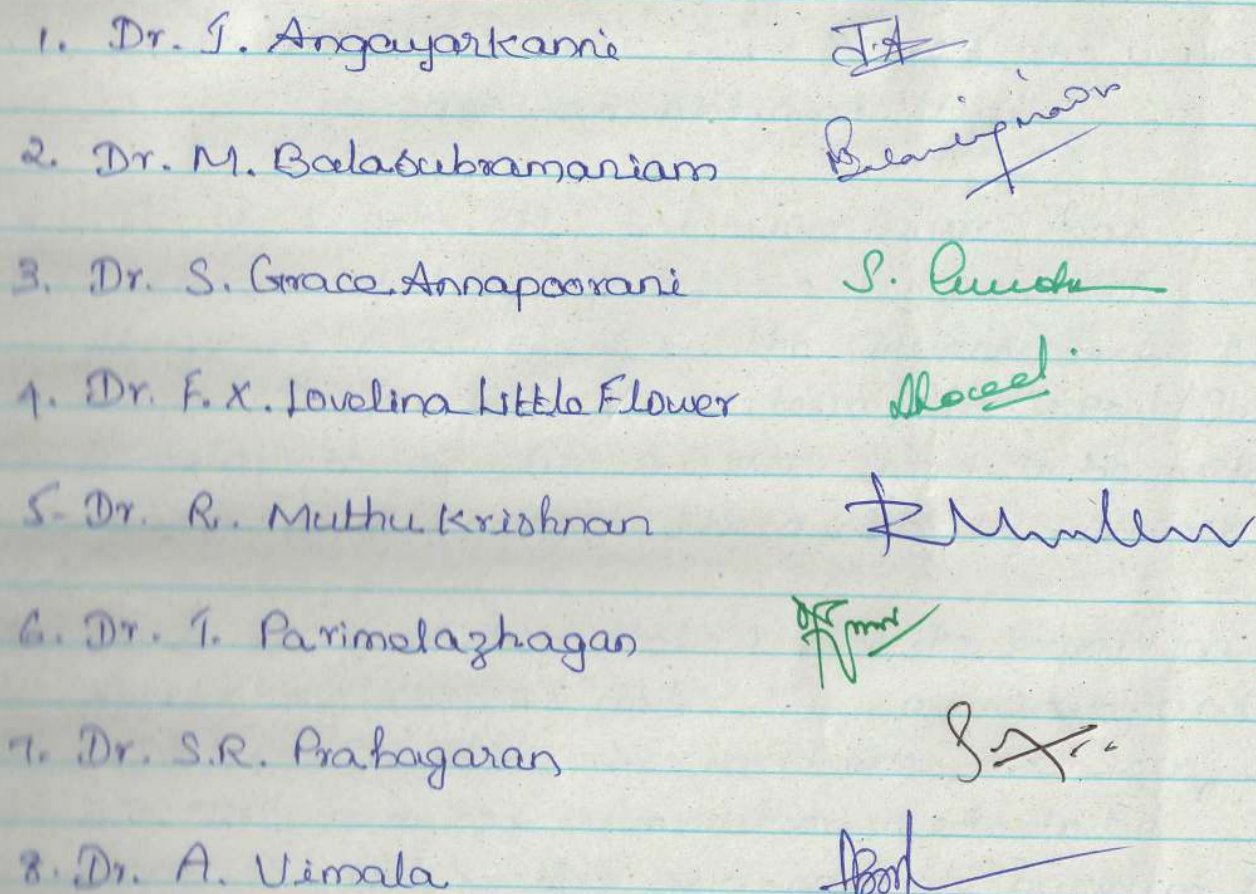 1. Dr. J. Angayarkanni J.A
2. Dr. M. Balasubramaniam
3. Dr. S. Grace Annapoorani S.
4. Dr. F. X. Lovelina Little Flower
5. Dr. R. Muthu Krishnan
6. Dr. T. Parimelazhagan
7. Dr. S.R. Prabagaran
8. Dr. A. Vimala